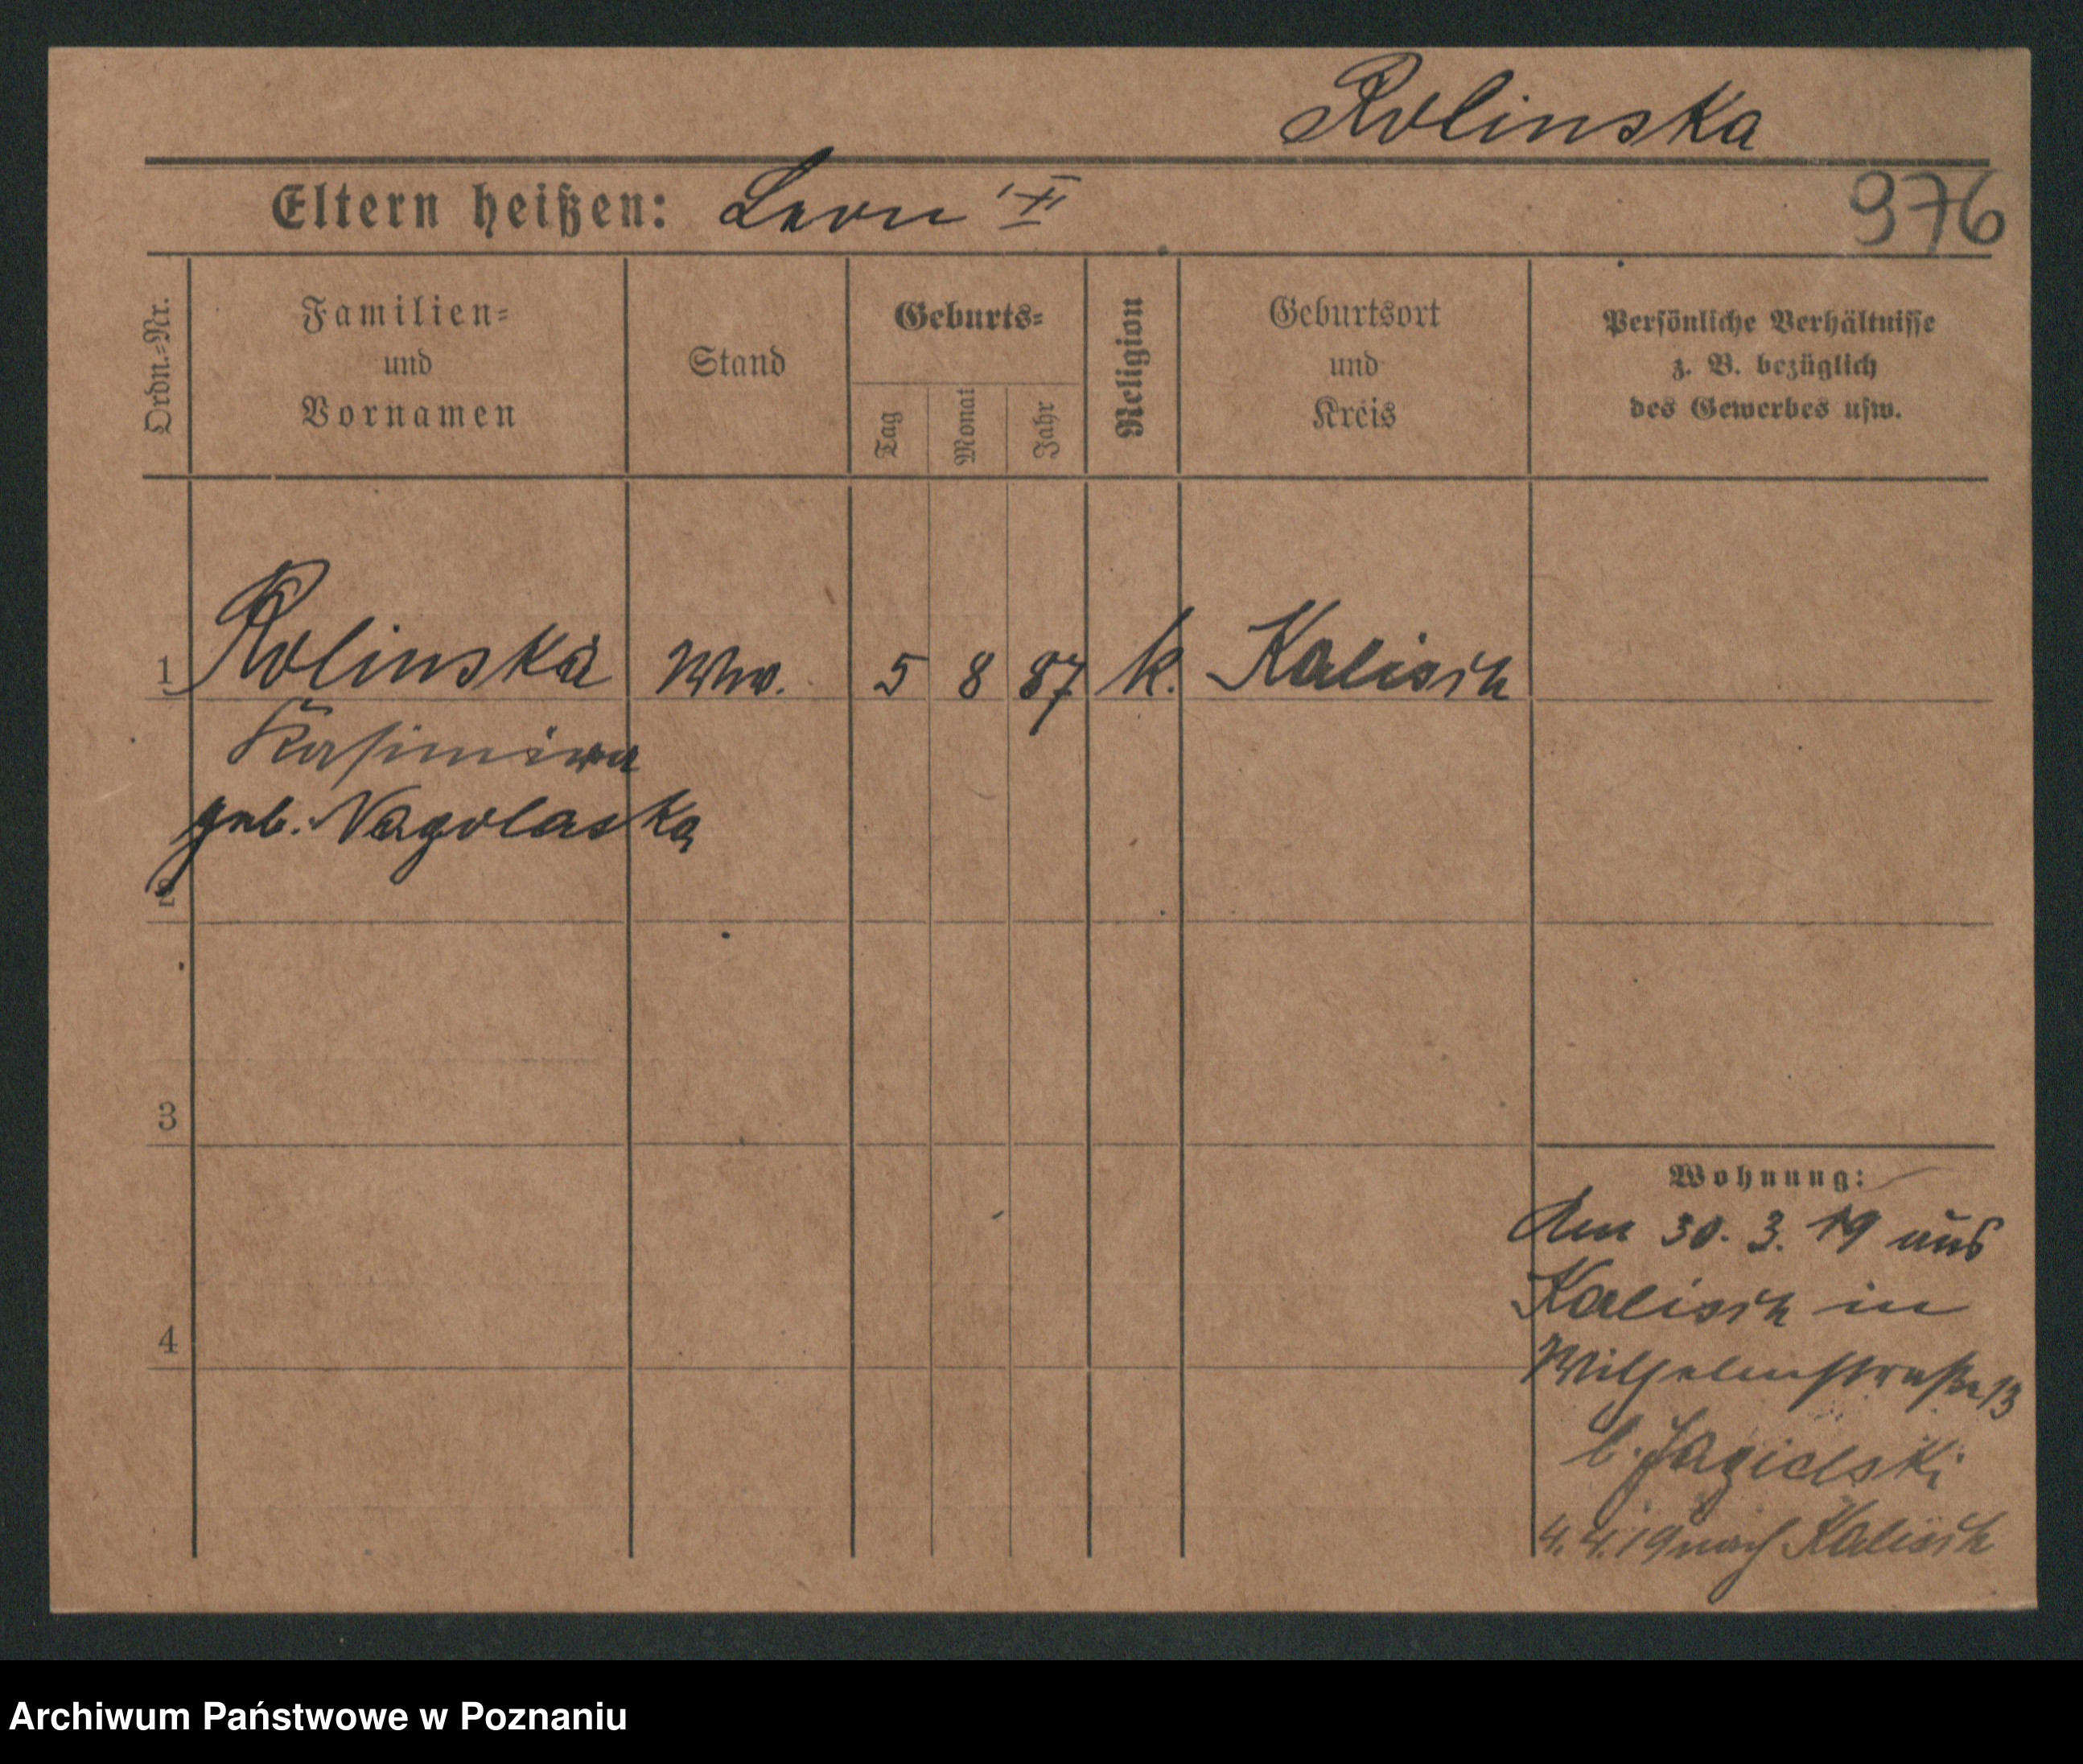 Rolinska
Eltern heißen: Leon
976
Ordn.=Nr.
Familien=
und
Vornamen
Stand
Geburts=
Tag
Monat
Jahr
Religion
Geburtsort
und
Kreis
Persönliche Verhältnisse
z. B. bezüglich
des Gewerbes usw.
1 Rolinska Ww. 5 8 87 k. Kalisch
Kasimira
geb. Nagolaska
2
3
Wohnung:
Am 30. 3. 19 aus
Kalisch in
4
Wilhelmstraße 13
b. Jagielski
4. 4. 19 nach Kalisch
Archiwum Państwowe w Poznaniu